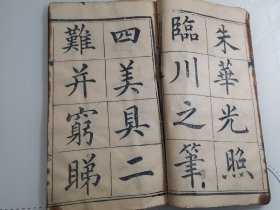 朱華光照
臨川之筆
四美具二
難并窮睇